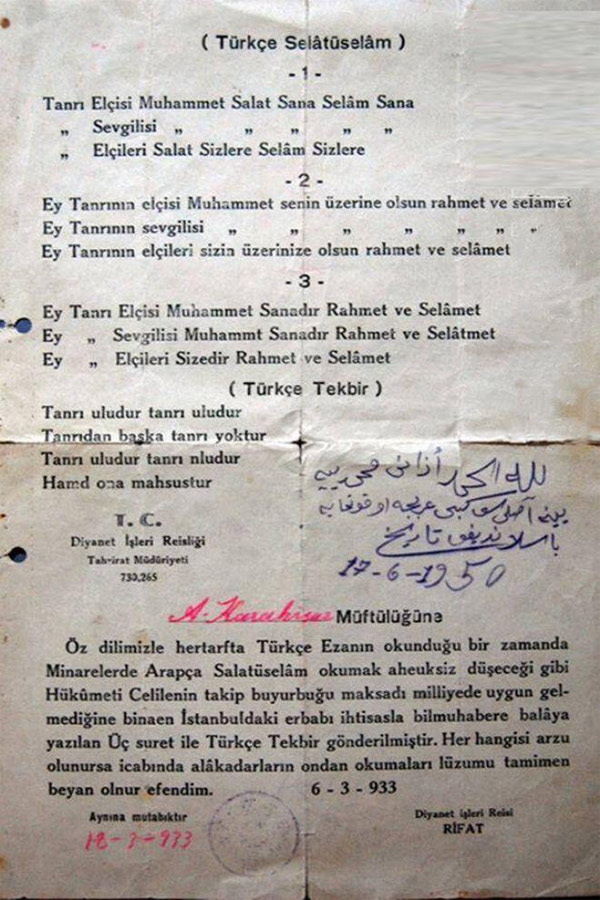 ( Türkçe Selâtüselâm )
- 1 -
Tanrı Elçisi Muhammet Salat Sana Selâm Sana
„ Sevgilisi „ „ „ „ „
„ Elçileri Salat Sizlere Selâm Sizlere
- 2 -
Ey Tanrının elçisi Muhammet senin üzerine olsun rahmet ve selâmet
Ey Tanrının sevgilisi „ „ „ „ „ „ „
Ey Tanrının elçileri sizin üzerinize olsun rahmet ve selâmet
- 3 -
Ey Tanrı Elçisi Muhammet Sanadır Rahmet ve Selâmet
Ey „ Sevgilisi Muhammt Sanadır Rahmet ve Selâtmet
Ey „ Elçileri Sizedir Rahmet ve Selâmet
( Türkçe Tekbir )
Tanrı uludur tanrı uludur
Tanrıdan başka tanrı yoktur
Tanrı uludur tanrı nludur
Hamd ona mahsustur
لله الحمد أذانى
ينه اصلى كبى عربجه اوقونمايه
تاريخ
17-6-1950
T. C.
Diyanet İşleri Reisliği
Tahrirat Müdüriyeti
730,265
A. Karahisar Müftülüğüne
Öz dilimizle hertarfta Türkçe Ezanın okunduğu bir zamanda
Minarelerde Arapça Salatüselâm okumak aheuksiz düşeceği gibi
Hükûmeti Celilenin takip buyurbuğu maksadı milliyede uygun gel-
mediğine binaen İstanbuldaki erbabı ihtisasla bilmuhabere balâya
yazılan Üç suret ile Türkçe Tekbir gönderilmiştir. Her hangisi arzu
olunursa icabında alâkadarların ondan okumaları lüzumu tamimen
beyan olnur efendim. 6 - 3 - 933
Aynına mutabıktır
18-3-933
Diyanet işleri Reisi
RİFAT